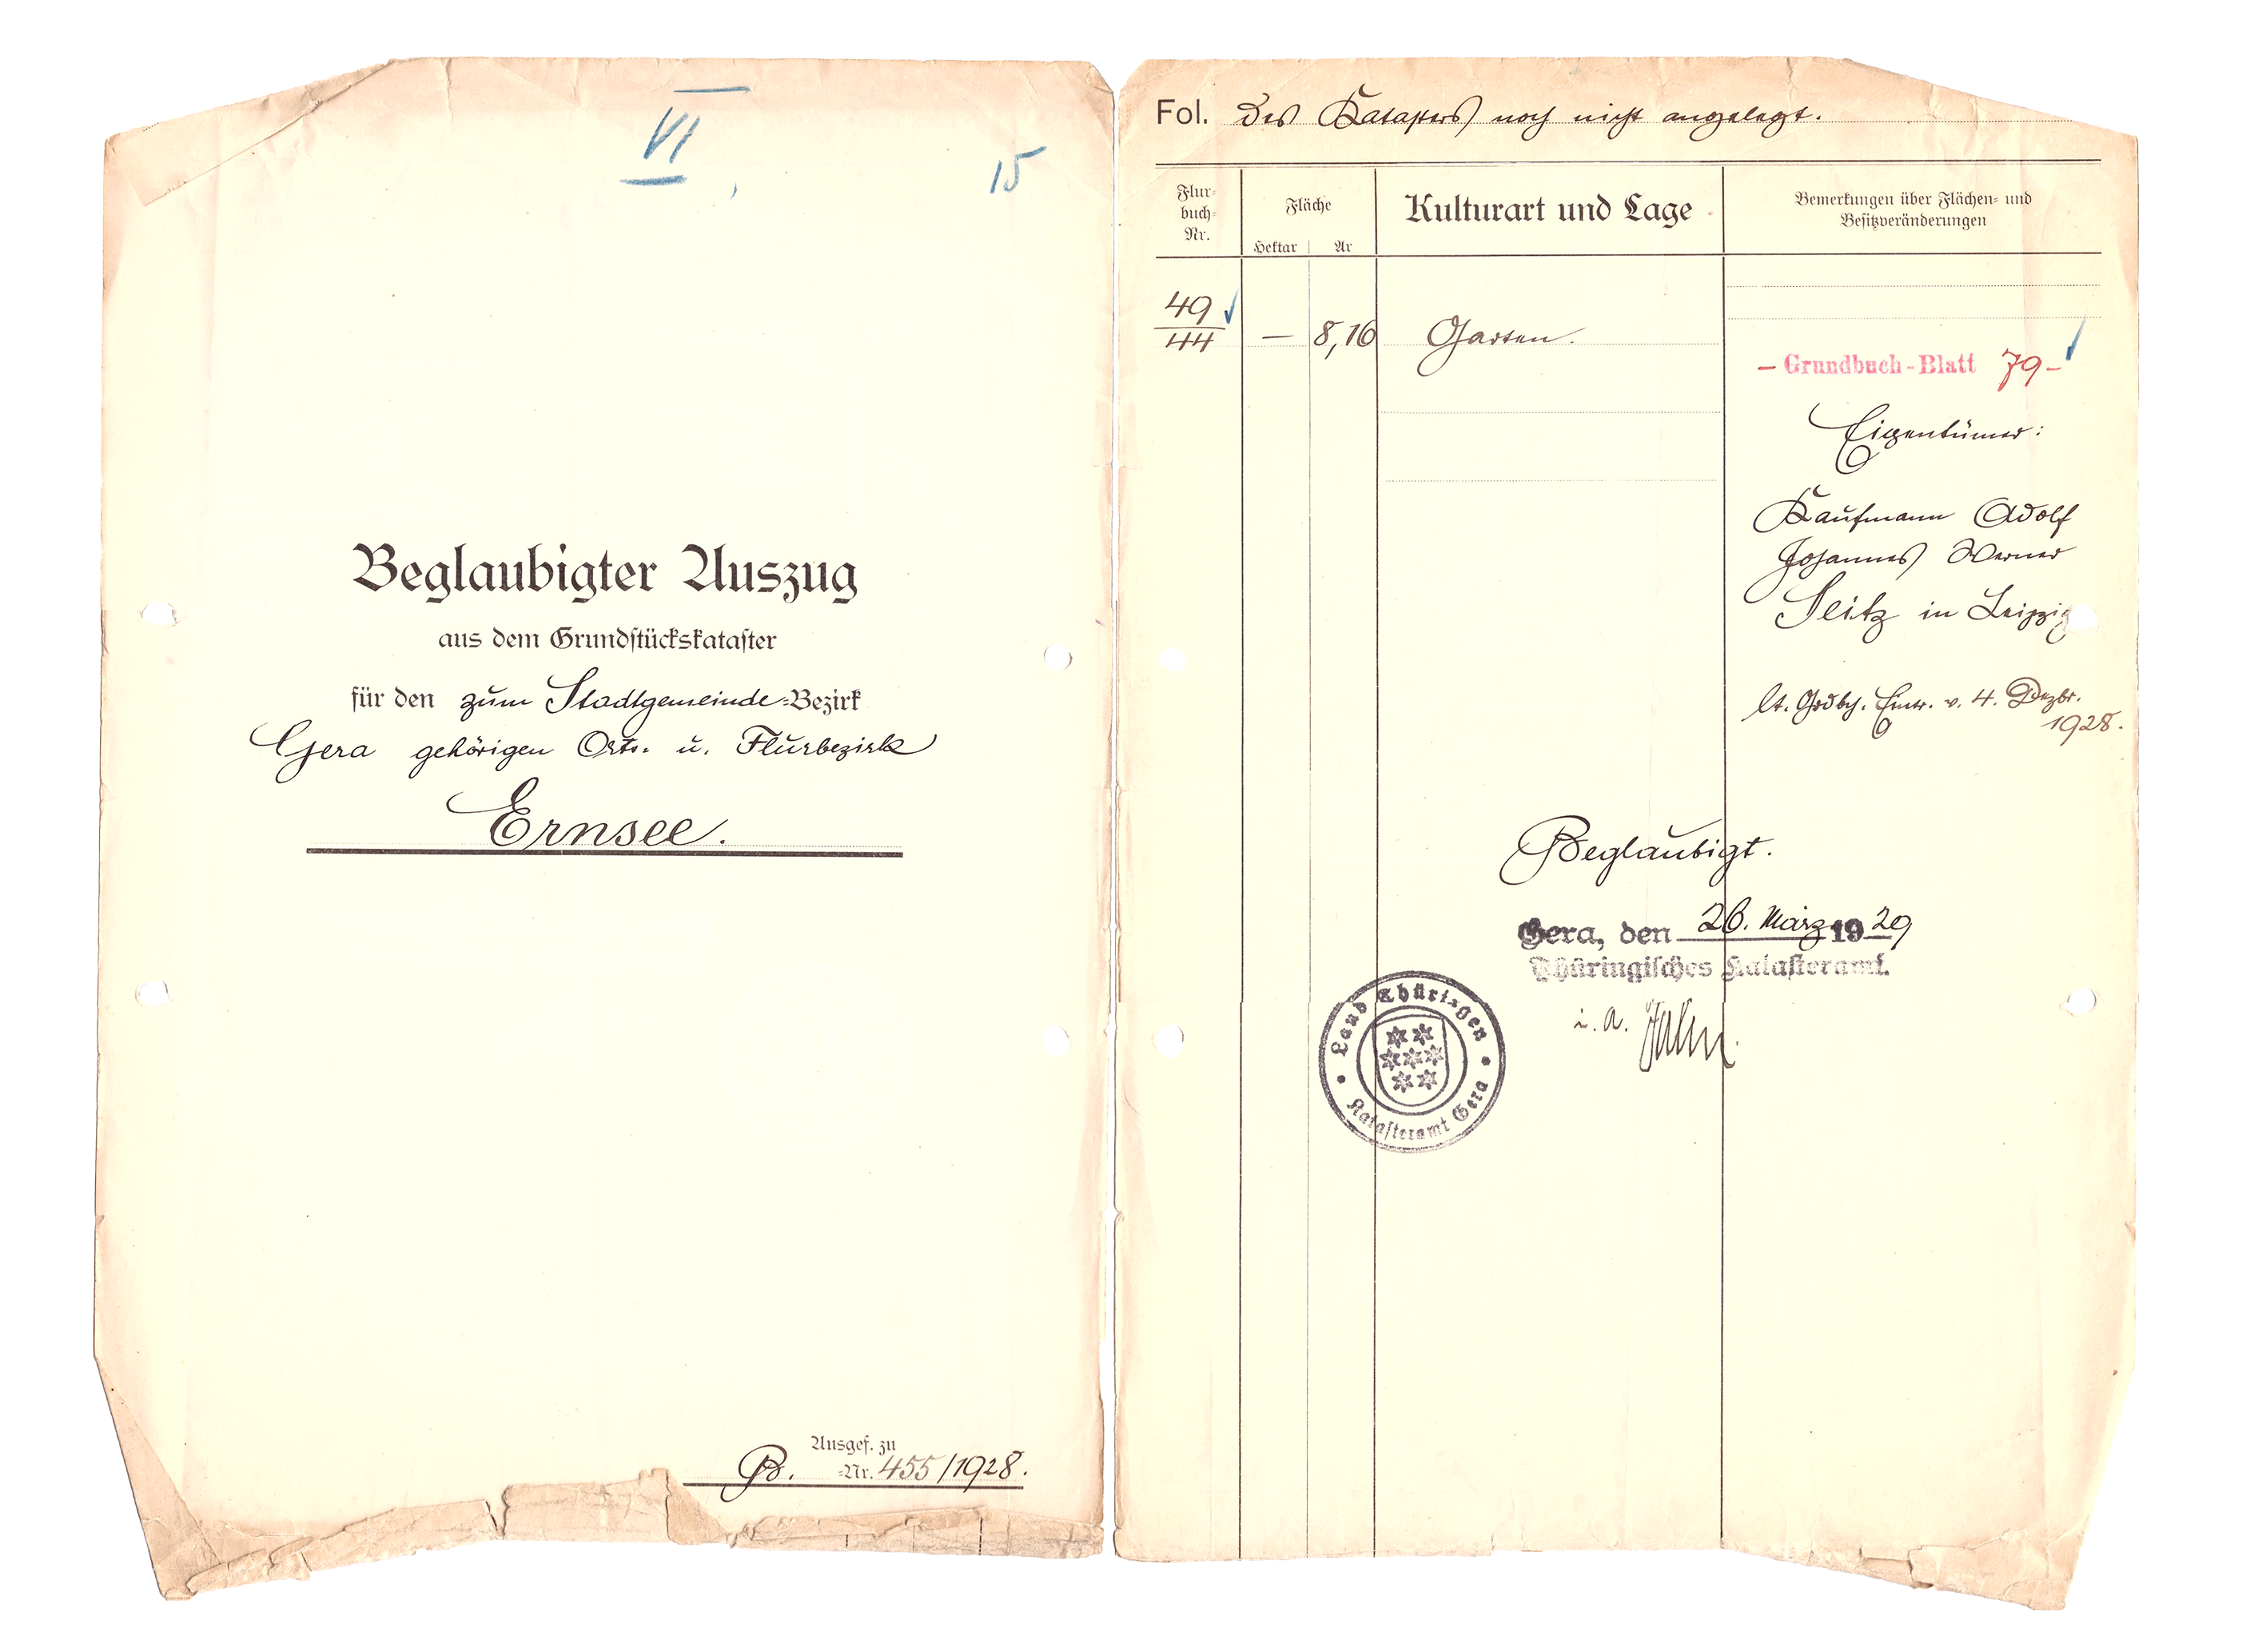 VI
15
Beglaubigter Auszug
aus dem Grundstückskataster
für den zum Stadtgemeinde-Bezirk
Gera gehörigen Orts- u. Flurbezirk
Ernsee.
Ausgef. zu
B. -Nr. 455/1928.
Fol. des Katasters noch nicht angelegt.
Flur-
buch-
Nr.
Fläche
Hektar Ar
Kulturart und Lage
Bemerkungen über Flächen- und
Besitzveränderungen
49
44
— 8,10 Garten.
— Grundbuch-Blatt 79 —
Eigentümer:
Kaufmann Adolf
Johannes Werner
Seitz in Leipzig
lt. Grdbch. Eintr. v. 4. Dezbr.
1928.
Beglaubigt.
Gera, den 26. März 1929
Thüringisches Katasteramt.
i. A.
Land Thüringen
Katasteramt Gera